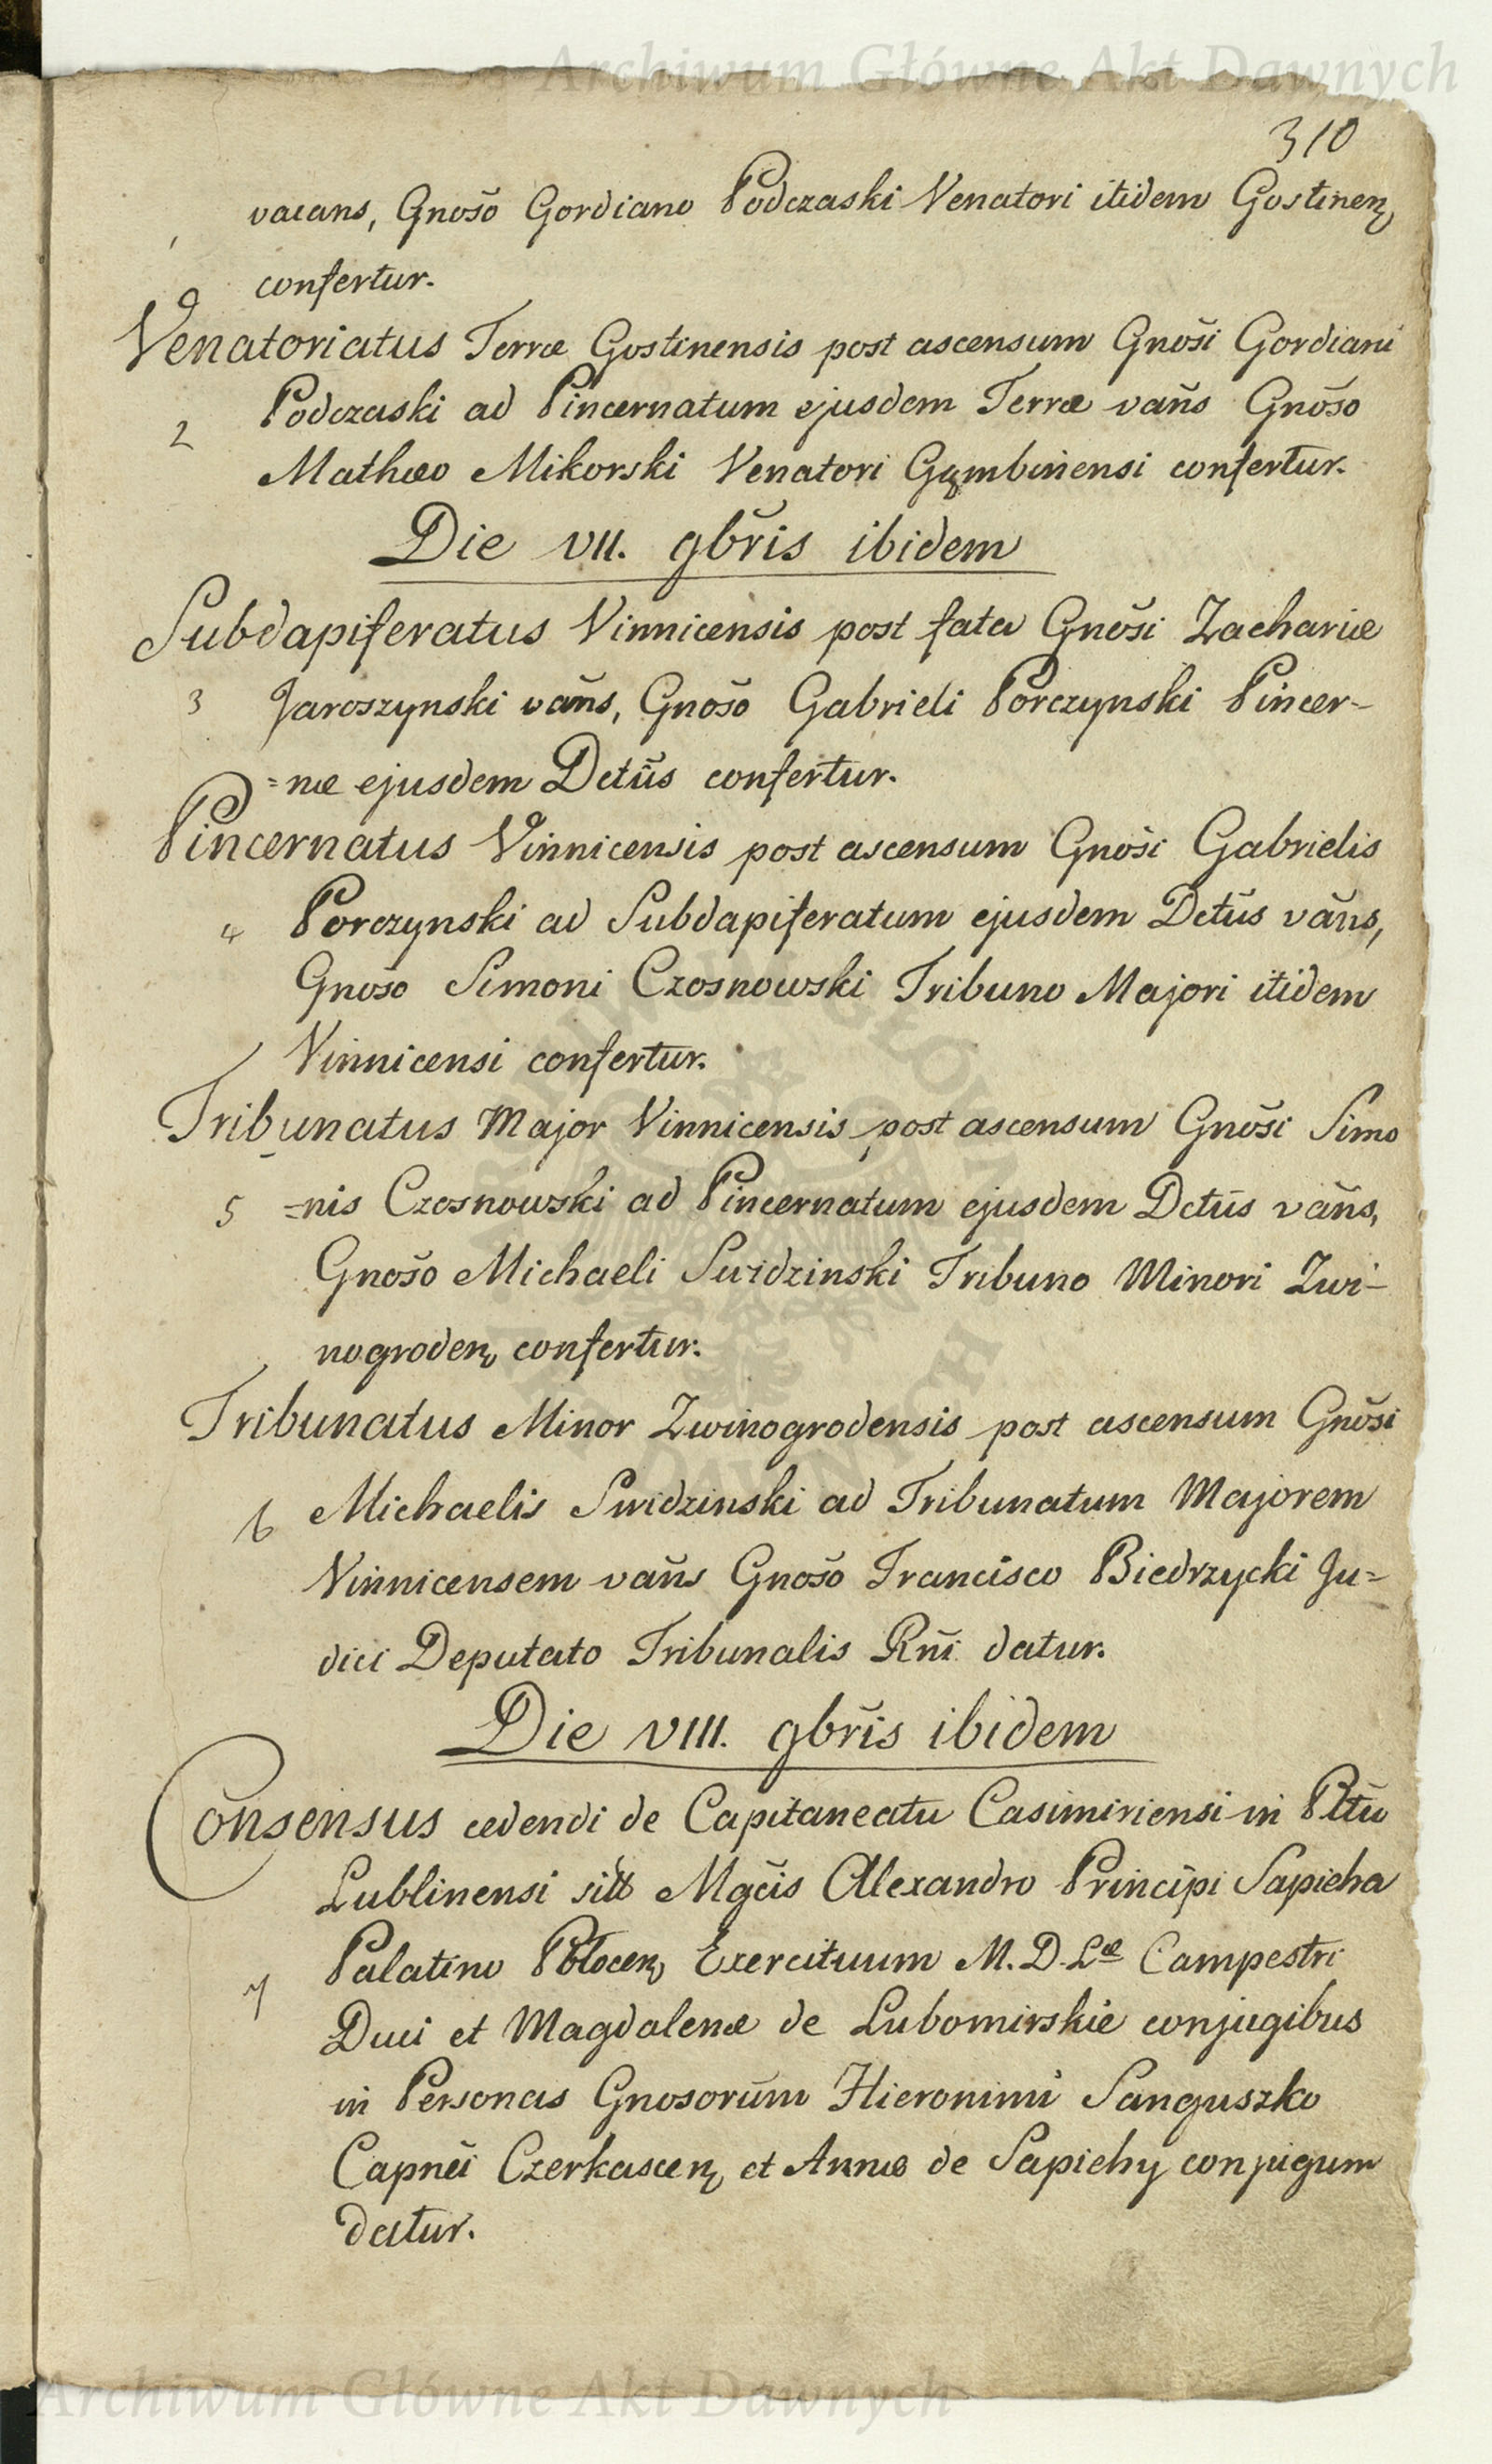 Archiwum Główne Akt Dawnych
310
vacans, Gnošo Gordiano Podczaski Venatori itidem Gostinen
confertur.
Venatoriatus Terræ Gostinensis post ascensum Gnoši Gordiani
Podczaski ad Pincernatum ejusdem Terræ vañs Gnošo
2
Mathæo Mikorski Venatori Gąmbinensi confertur.
Die VII. 9břis ibidem
Subdapiferatus Vinnicensis post fata Gnoši Zachariæ
3 Jaroszynski vañs, Gnošo Gabrieli Porczynski Pincer-
=næ ejusdem Dctũs confertur.
Pincernatus Vinnicensis post ascensum Gnoši Gabrielis
4 Porczynski ad Subdapiferatum ejusdem Dctũs vañs,
Gnošo Simoni Czosnowski Tribuno Majori itidem
Vinnicensi confertur.
Tribunatus Major Vinnicensis post ascensum Gnoši Simo
5 =nis Czosnowski ad Pincernatum ejusdem Dctũs vañs,
Gnošo Michaeli Swidzinski Tribuno Minori Zwi-
nogroden confertur.
Tribunatus Minor Zwinogrodensis post ascensum Gnoši
6 Michaelis Swidzinski ad Tribunatum Majorem
Vinnicensem vañs Gnošo Francisco Biedrzycki Ju=
dici Deputato Tribunalis Rñi datur.
Die VIII. 9břis ibidem
Consensus cedendi de Capitaneatu Casimiriensi in Pttũ
Lublinensi sitt Mgčis Alexandro Principi Sapieha
7 Palatino Płocen Exercituum M. D. Læ Campestri
Duci et Magdalenæ de Lubomirskie conjugibus
in Personas Gnosorũm Hieronimi Sanguszko
Capnẽi Czerkascen et Annæ de Sapiehy conjugum
datur.
Archiwum Główne Akt Dawnych